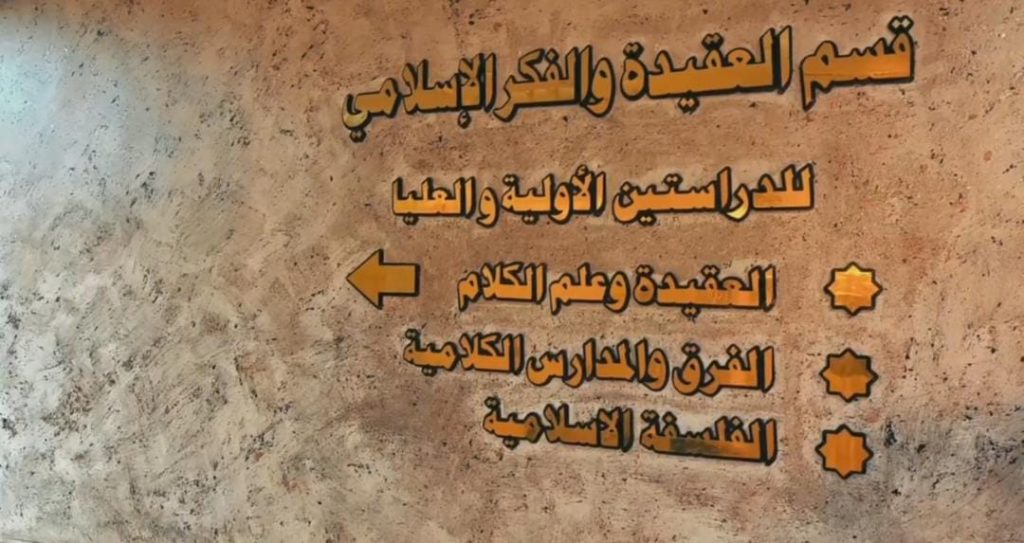 قسم العقيدة والفكر الإسلامي
للدراستين الأولية والعليا
العقيدة وعلم الكلام
الفرق والمدارس الكلامية
الفلسفة الاسلامية